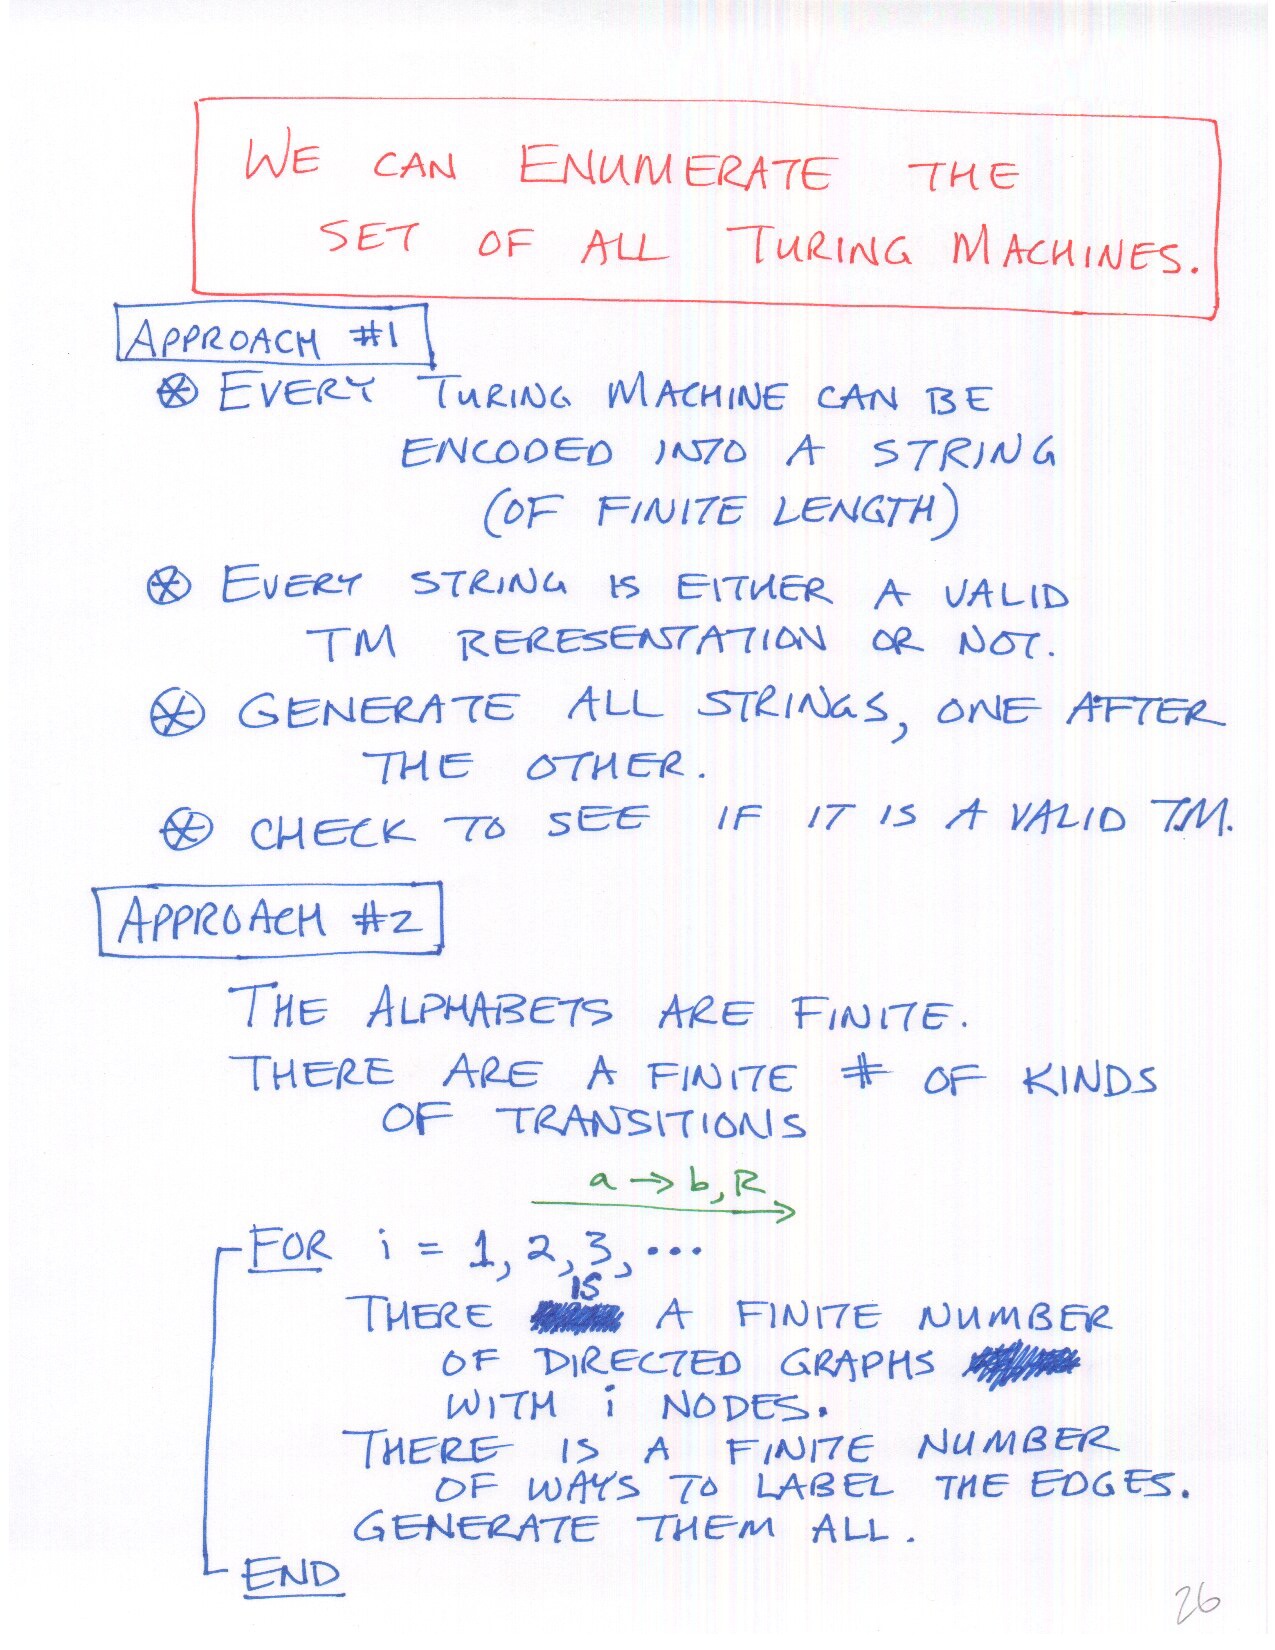 WE CAN ENUMERATE THE
SET OF ALL TURING MACHINES.
APPROACH #1
⊛ EVERY TURING MACHINE CAN BE
ENCODED INTO A STRING
(OF FINITE LENGTH)
⊛ EVERY STRING IS EITHER A VALID
TM RERESENTATION OR NOT.
⊛ GENERATE ALL STRINGS, ONE AFTER
THE OTHER.
⊛ CHECK TO SEE IF IT IS A VALID TM.
APPROACH #2
THE ALPHABETS ARE FINITE.
THERE ARE A FINITE # OF KINDS
OF TRANSITIONS
a → b, R
FOR i = 1, 2, 3, ...
THERE IS A FINITE NUMBER
OF DIRECTED GRAPHS
WITH i NODES.
THERE IS A FINITE NUMBER
OF WAYS TO LABEL THE EDGES.
GENERATE THEM ALL.
END
26